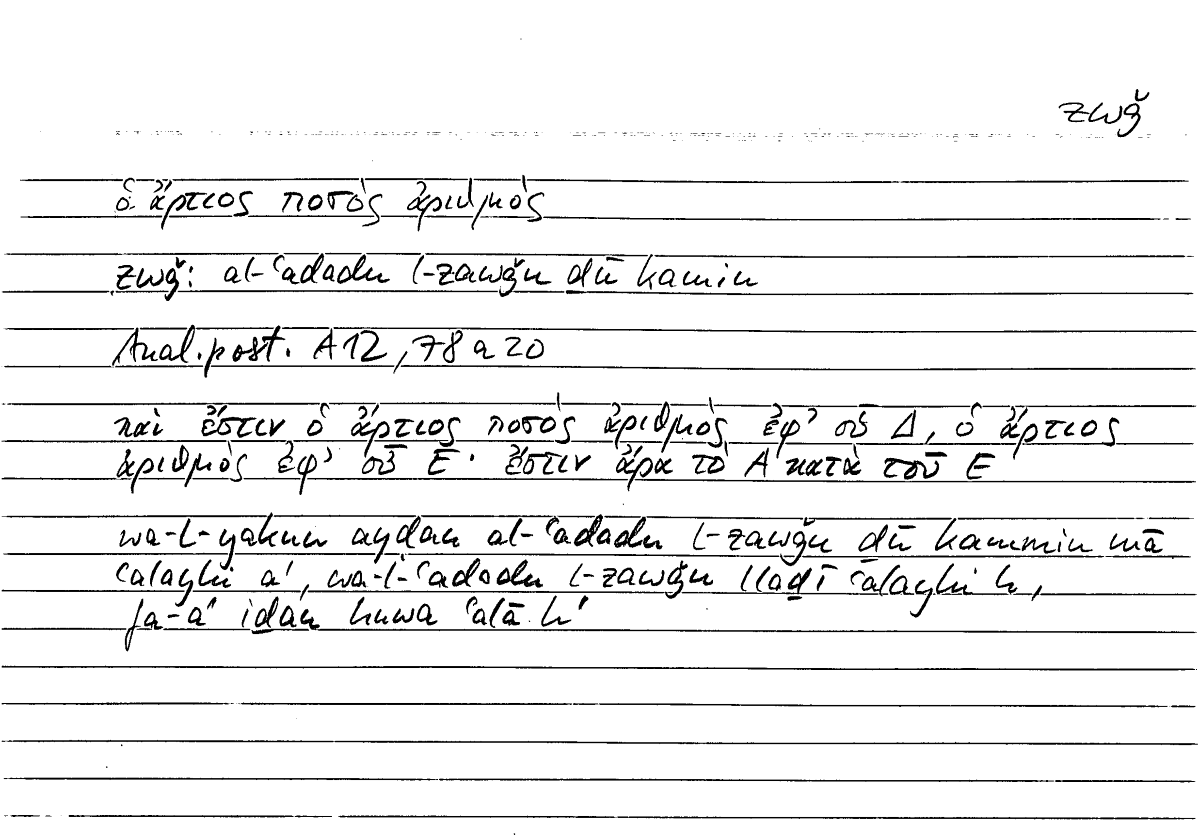 zwǧ
ὁ ἄρτιος ποσὸς ἀριθμὸς
zwǧ: al-ʿadadu l-zawǧu ḏū kamin
Anal. post. A 12, 78 a 20
καὶ ἔστιν ὁ ἄρτιος ποσὸς ἀριθμὸς ἐφ’ οὗ Δ, ὁ ἄρτιος
ἀριθμὸς ἐφ’ οὗ Ε· ἔστιν ἄρα τὸ Α κατὰ τοῦ Ε
wa-l-yakun ayḍan al-ʿadadu l-zawǧu ḏū kammin mā
ʿalayhi a', wa-l-ʿadadu l-zawǧu lladī ʿalayhi h,
fa-a' iḏan huwa ʿalā h'